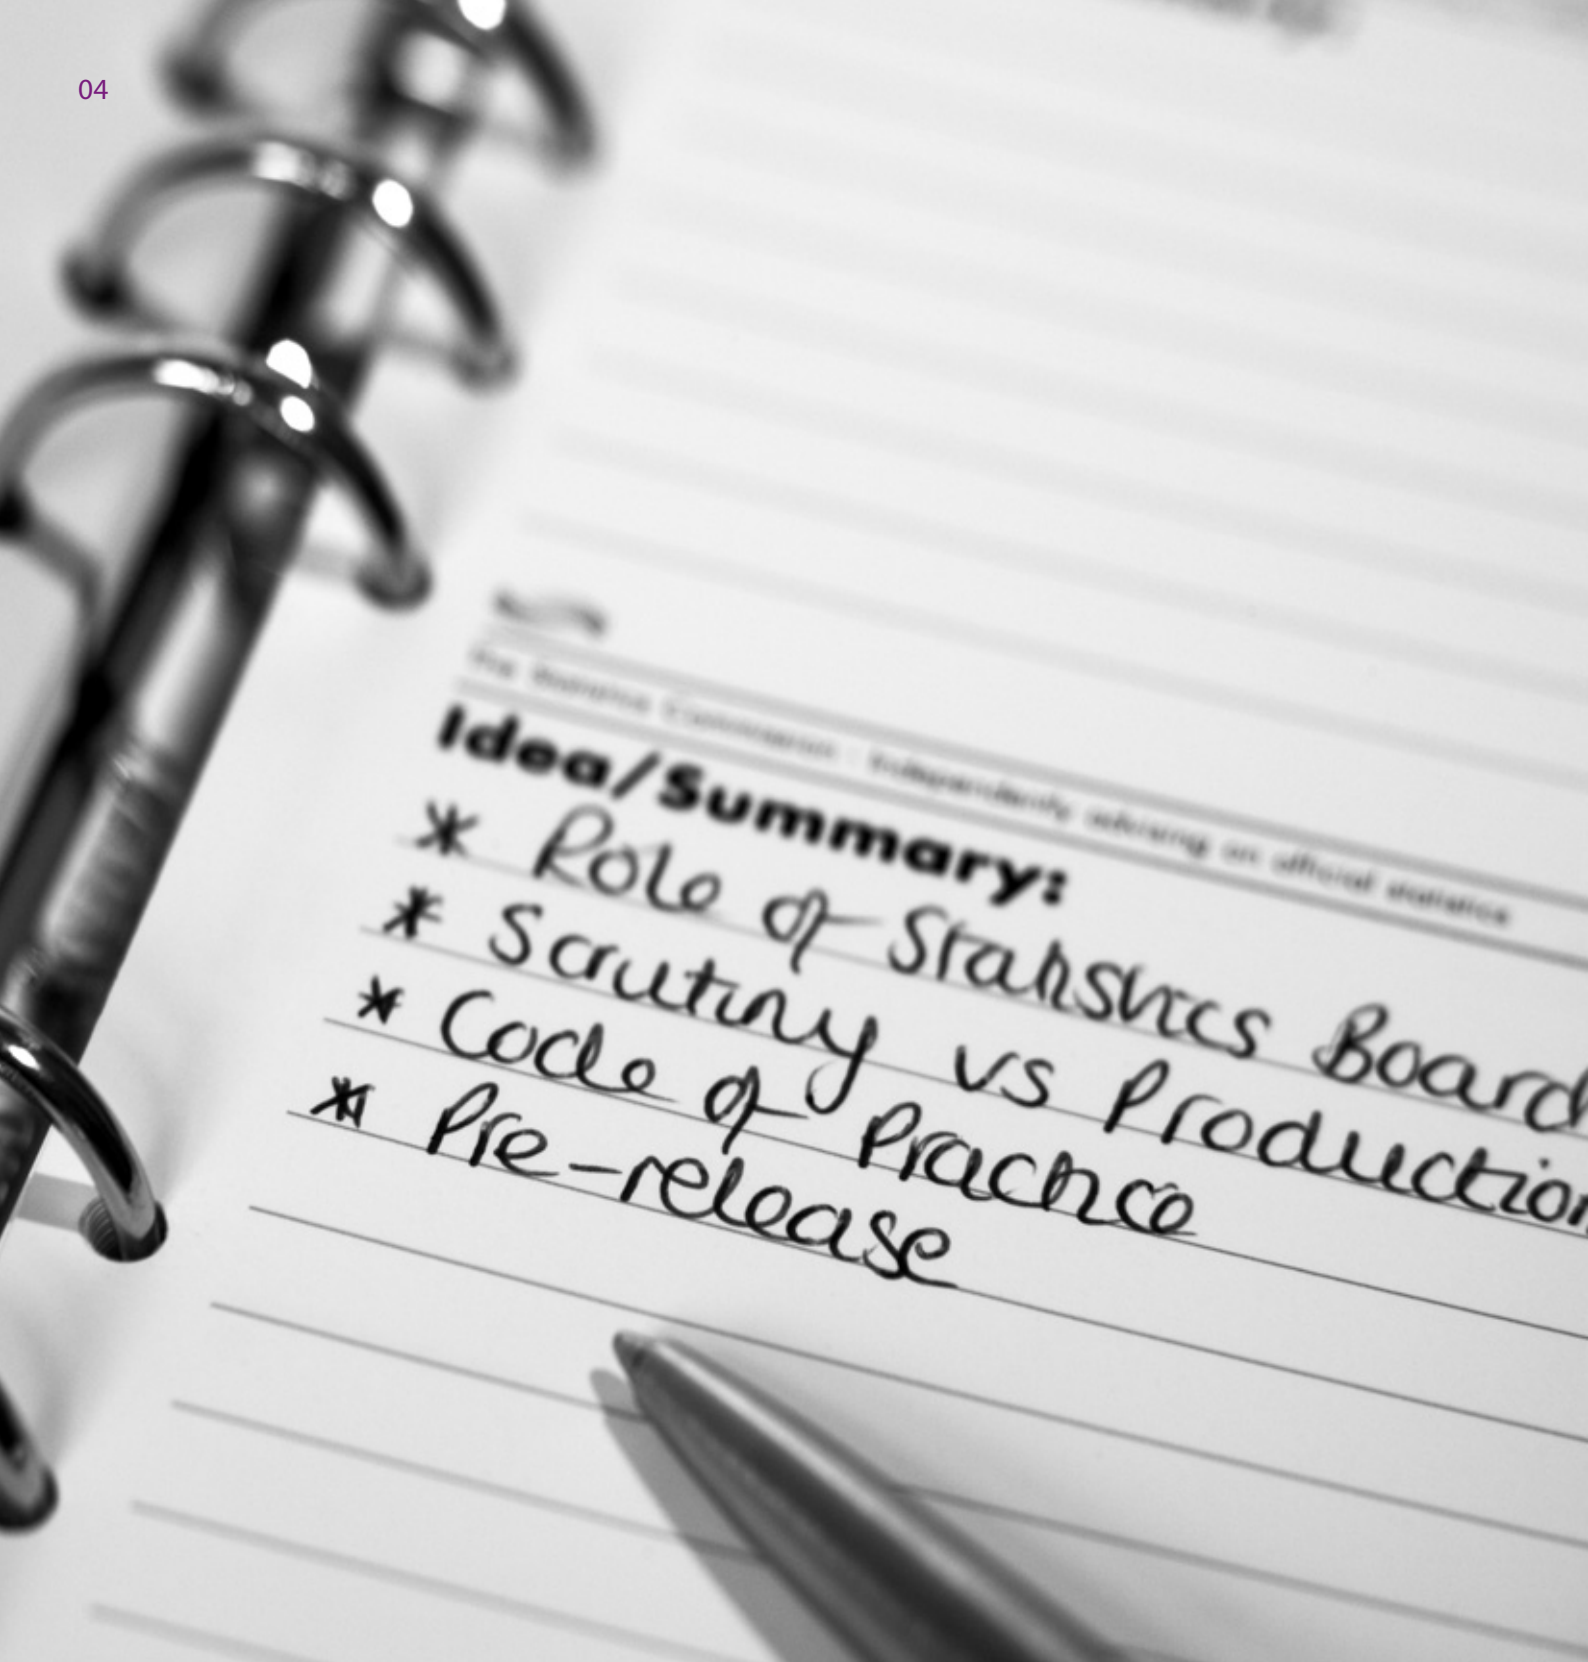 04
The Statistics Commission : Independently advising on official statistics
Idea/Summary:
* Role of Statistics Board
* Scrutiny vs Production
* Code of Practice
* Pre-release